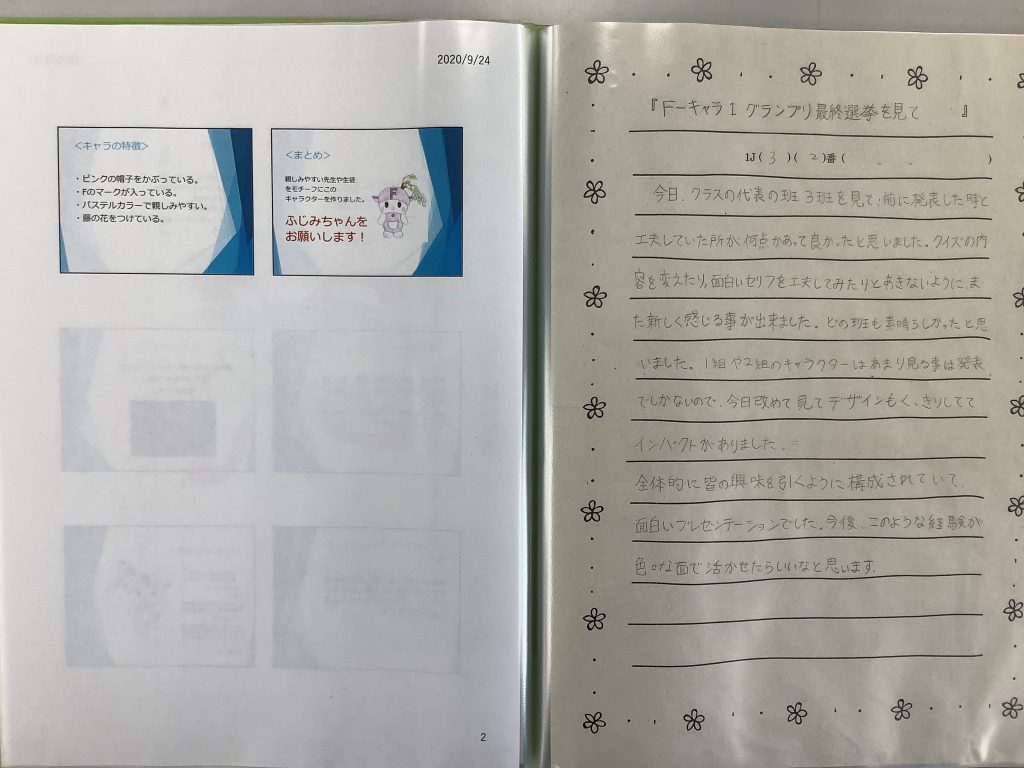 2020/9/24
<キャラの特徴>
・ピンクの帽子をかぶっている。
・Fのマークが入っている。
・パステルカラーで親しみやすい。
・藤の花をつけている。
<まとめ>
親しみやすい先生や生徒
をモチーフにこの
キャラクターを作りました。
ふじみちゃんを
お願いします！
F
2
『F-キャラ1 グランプリ最終選挙を見て 』
1J( 3 )( 2 )番( )
今日、クラスの代表の班 3班を見て、前に発表した時と
工夫していた所が何点かあって良かったと思いました。クイズの内
容を変えたり、面白いセリフを工夫してみたりとあきないように、ま
た新しく感じる事が出来ました。どの班も素晴らしかったと思
いました。1組や2組のキャラクターはあまり見る事は発表
でしかないので、今日改めて見てデザインもくっきりしてて
インパクトがありました。
全体的に皆の興味を引くように構成されていて、
面白いプレゼンテーションでした。今後、このような経験が
色々な面で活かせたらいいなと思います。